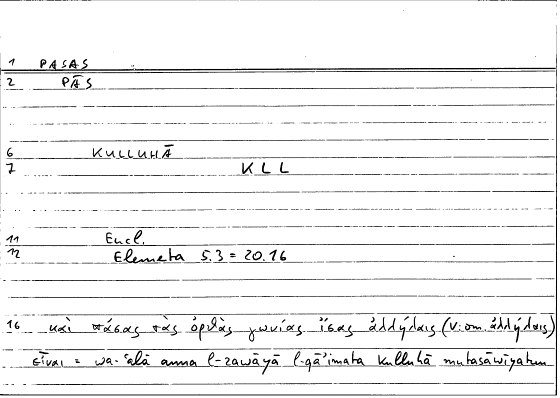 1 PASAS
2 PĀS
6 KULLUHĀ
7 KLL
11 Eucl.
12 Elemeta 5.3 = 20.16
16 καὶ πάσας τὰς ὀρθὰς γωνίας ἴσας ἀλλήλαις (v: om. ἀλλήλαις)
εἶναι = wa-ʿalā anna l-zawāyā l-qāʾimata kulluhā mutasāwiyatun